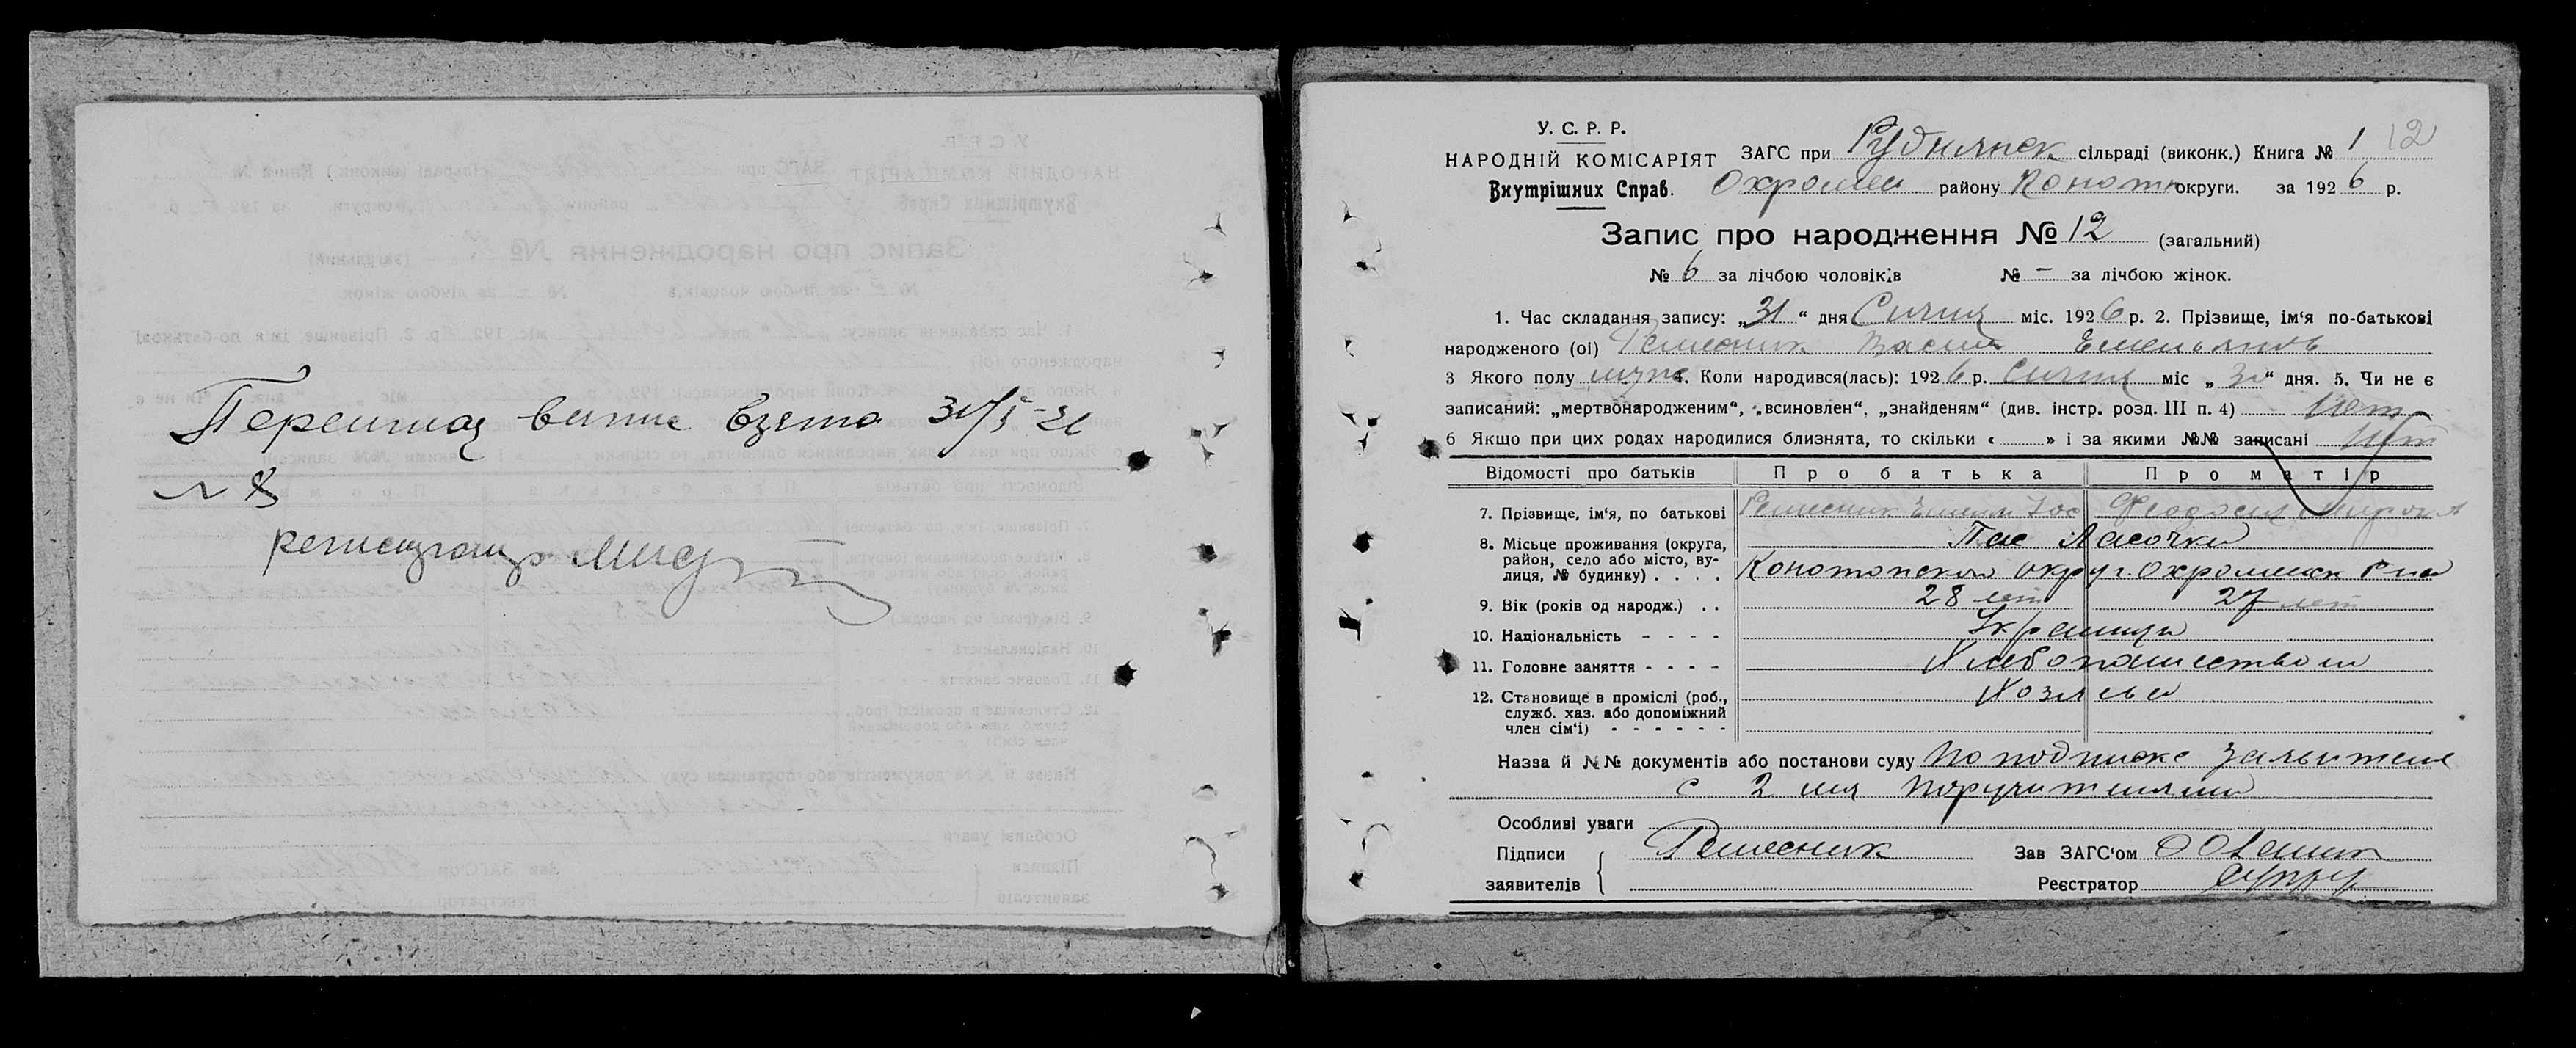 взята
№ 8
У. С. Р. Р.
НАРОДНІЙ КОМІСАРІЯТ
Внутрішних Справ.
ЗАГС при Руднянск сільраді (виконк.) Книга № 1 12
Охромеев району Конотп округи. за 1926 р.
Запис про народження № 12 (загальний)
№ 6 за лічбою чоловіків № – за лічбою жінок.
1. Час складання запису: „31“ дня Сичня міс. 1926 р. 2. Прізвище, ім'я по-батькові
народженого (ої) Ремесник Васил Емельянов
3 Якого полу муж 4. Коли народився(лась): 1926 р. Сичня міс „30“ дня. 5. Чи не є
записаний: „мертвонародженим“, „всиновлен“, „знайденям“ (див. інстр. розд. III п. 4) Нет
6 Якщо при цих родах народилися близнята, то скільки « » і за якими №№ записані Нет
Відомості про батьків Про батька Про матір
7. Прізвище, ім'я, по батькові Ремесник Емел Феодосия
8. Місьце проживання (округа, район, село або місто, вулиця, № будинку) . . . . Пос Ласочки
Конотопской округ Охромеевск Р на
9. Вік (років од народж.) . . 28 лет 27 лет
10. Національність - - - - Украинцы
11. Головне заняття - - - - Хлебопашеством
12. Становище в проміслі (роб., служб. хаз. або допоміжний член сім'ї) - - - - - - Хозяева
Назва й №№ документів або постанови суду По подписке заявителя
с 2 мя поручителями
Особливі уваги
Підписи заявителів Ремесник
Зав ЗАГС'ом
Реєстратор